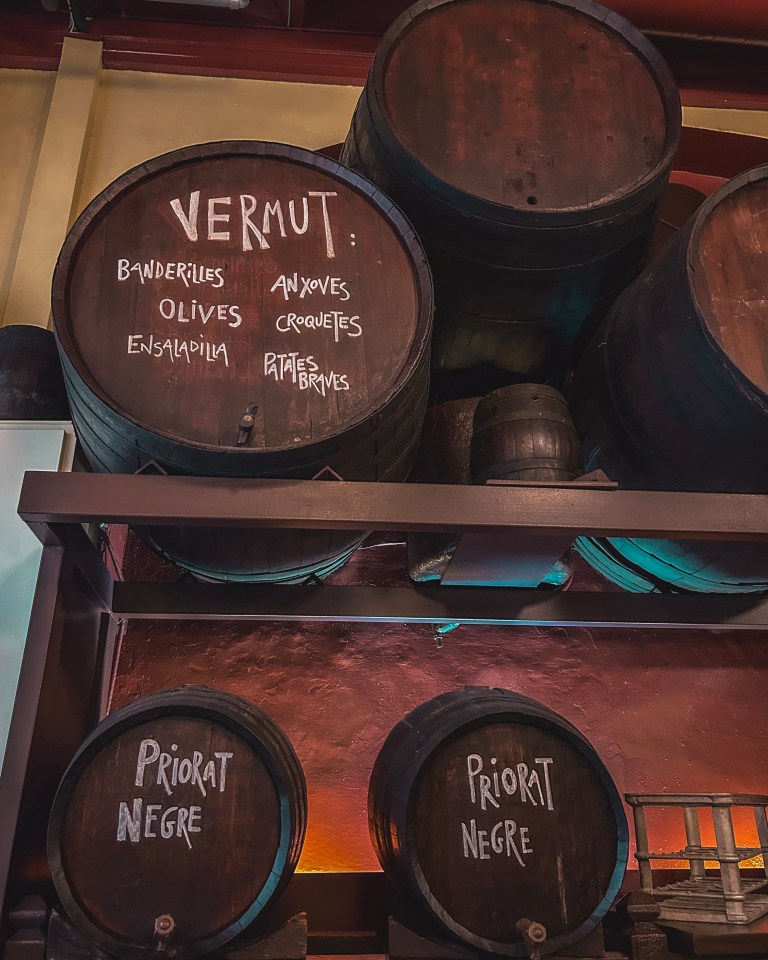 VERMUT:
BANDERILLES
OLIVES
ENSALADILLA
ANXOVES
CROQUETES
PATATES
BRAVES
PRIORAT
NEGRE
PRIORAT
NEGRE